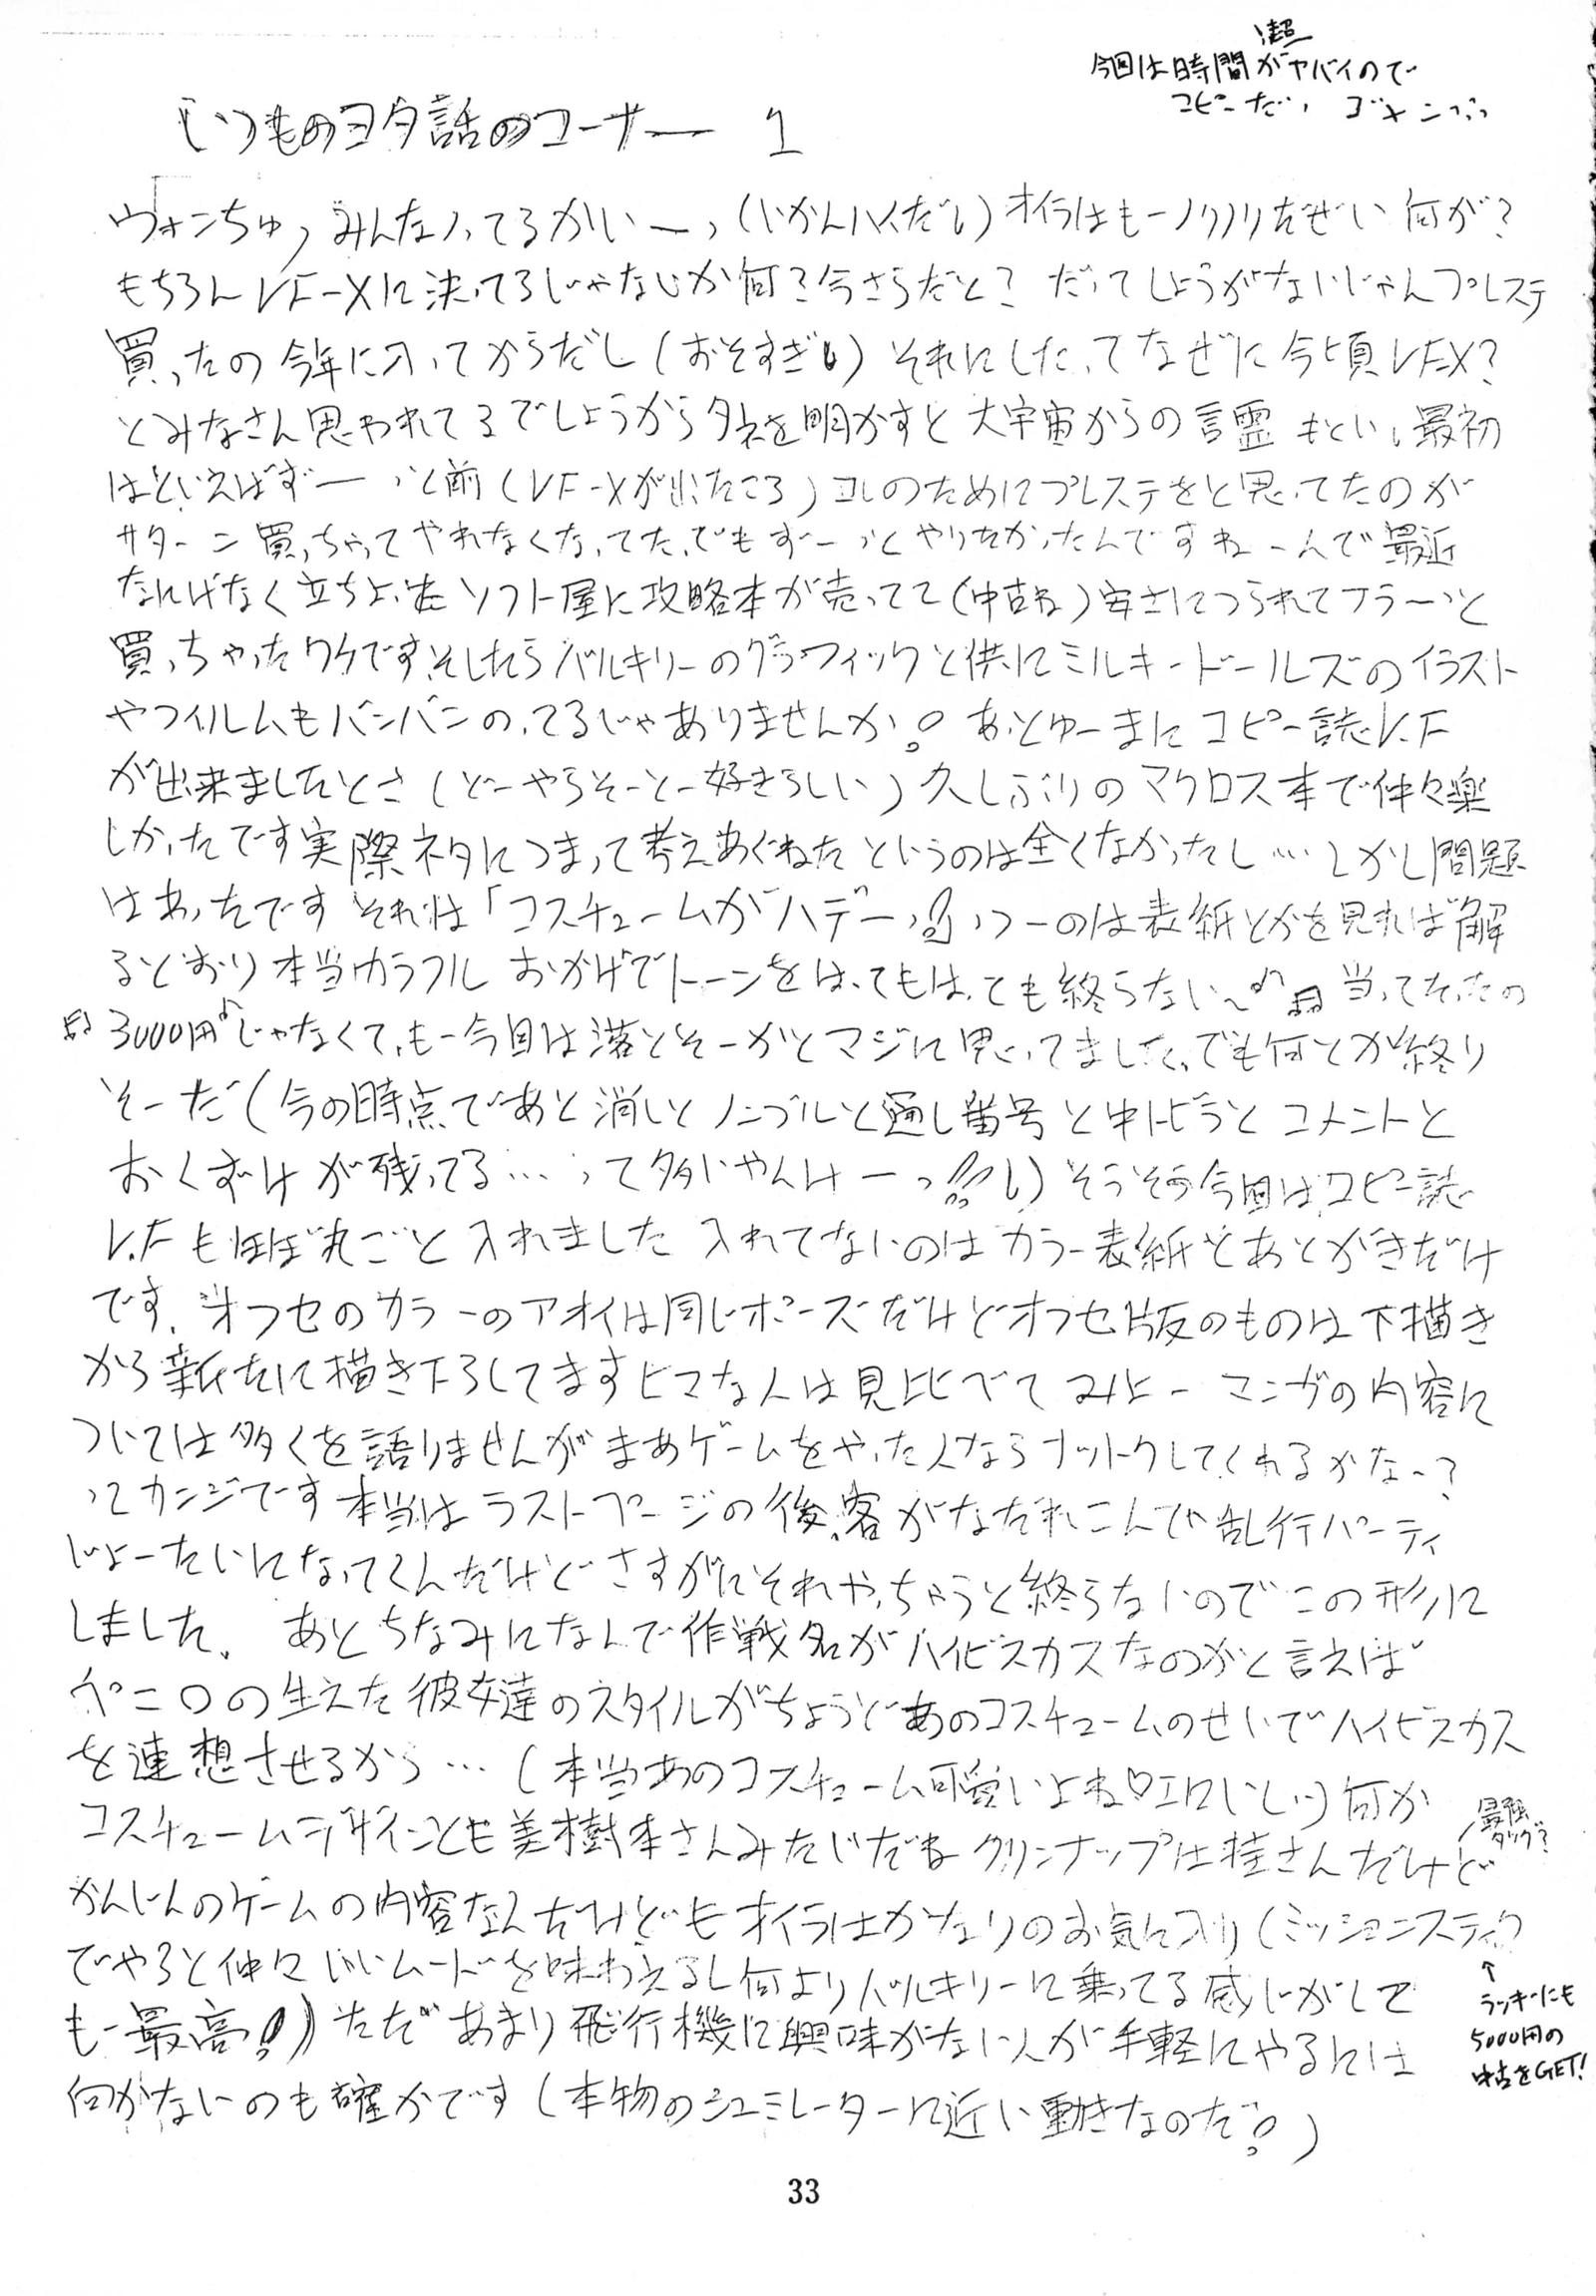 超
今回は時間がヤバイので
コピーだい ゴメンっっ
いつものヨタ話のコーナー 1
ウォンちゅ、みんなノってるかいーっ(いかんハイだし)オイラはもーノリノリだぜい 何が?
もちろんVF-Xに決ってるじゃないか何?今さらだと? だってしょうがないじゃんプレステ
買ったの今年に入ってからだし(おそすぎい)それにしたってなぜに今頃VF-X?
とみなさん思われてるでしょうからタネを明かすと大宇宙からの言霊 もとい、最初
はといえばずーーっと前(VF-Xが出たころ)コレのためにプレステをと思ってたのが
サターン買っちゃってやれなくなってた、でもずーっとやりたかったんですねーんで最近
なにげなく立ちよったソフト屋に攻略本が売ってて(中古ね)安さにつられてフラーっと
買っちゃったワケです、そしたらバルキリーのグラフィックと供にミルキードールズのイラスト
やフィルムもバンバンのってるじゃありませんか! あっとゆーまにコピー誌V.F
が出来ましたとさ(どーやらそーとー好きらしい)久しぶりのマクロス本で仲々楽
しかったです実際ネタにつまって考えあぐねたというのは全くなかったし…しかし問題
はあったです それは「コスチュームがハデーっ!!」っつーのは表紙とかを見れば解
るとおり本当カラフル おかげでトーンをはってもはっても終らない〜♪♫ 当ってたったの
♫3000円♪じゃなくて、もー今回は落とそーかとマジに思ってました、でも何とか終り
そーだ(今の時点であと消しとノンブルと通し番号と中トビラとコメントと
おくずけが残ってる…って多いやんけーっ!!い)そうそう今回はコピー誌
V.Fもほぼ丸ごと入れました 入れてないのはカラー表紙とあとがきだけ
です、オフセのカラーのアオイは同じポーズだけどオフセ版のものは下描き
から新たに描き下ろしてますヒマな人は見比べてみよー マンガの内容に
ついては多くを語りませんがまあゲームをやった人ならナットクしてくれるかなー?
ってカンジです本当はラストページの後、客がなだれこんで乱行パーティ
じょーたいになってくんだけどさすがにそれやっちゃうと終らないのでこの形に
しました。 あとちなみになんで作戦名がハイビスカスなのかと言えば
ペニ○の生えた彼女達のスタイルがちょうどあのコスチュームのせいでハイビスカス
を連想させるから…(本当あのコスチューム可愛いよね♡エロいしい)何か
コスチュームデザインとも美樹本さんみたいだね クリンナップは桂さんだけど
最強タッグ?
かんじんのゲームの内容なんだけどもオイラはかなりのお気に入り(ミッションスティック
でやると仲々いいムードを味わえるし何よりバルキリーに乗ってる感じがして
も一最高!)ただあまり飛行機に興味がない人が手軽にやるには
向かないのも確かです(本物のシュミレーターに近い動きなのだ!)
↑
ラッキーにも
5000円の
中古をGET!
33